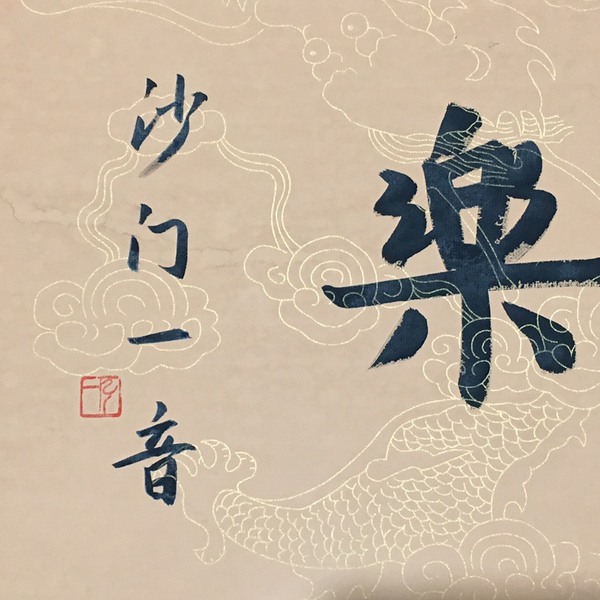 樂
沙门一音